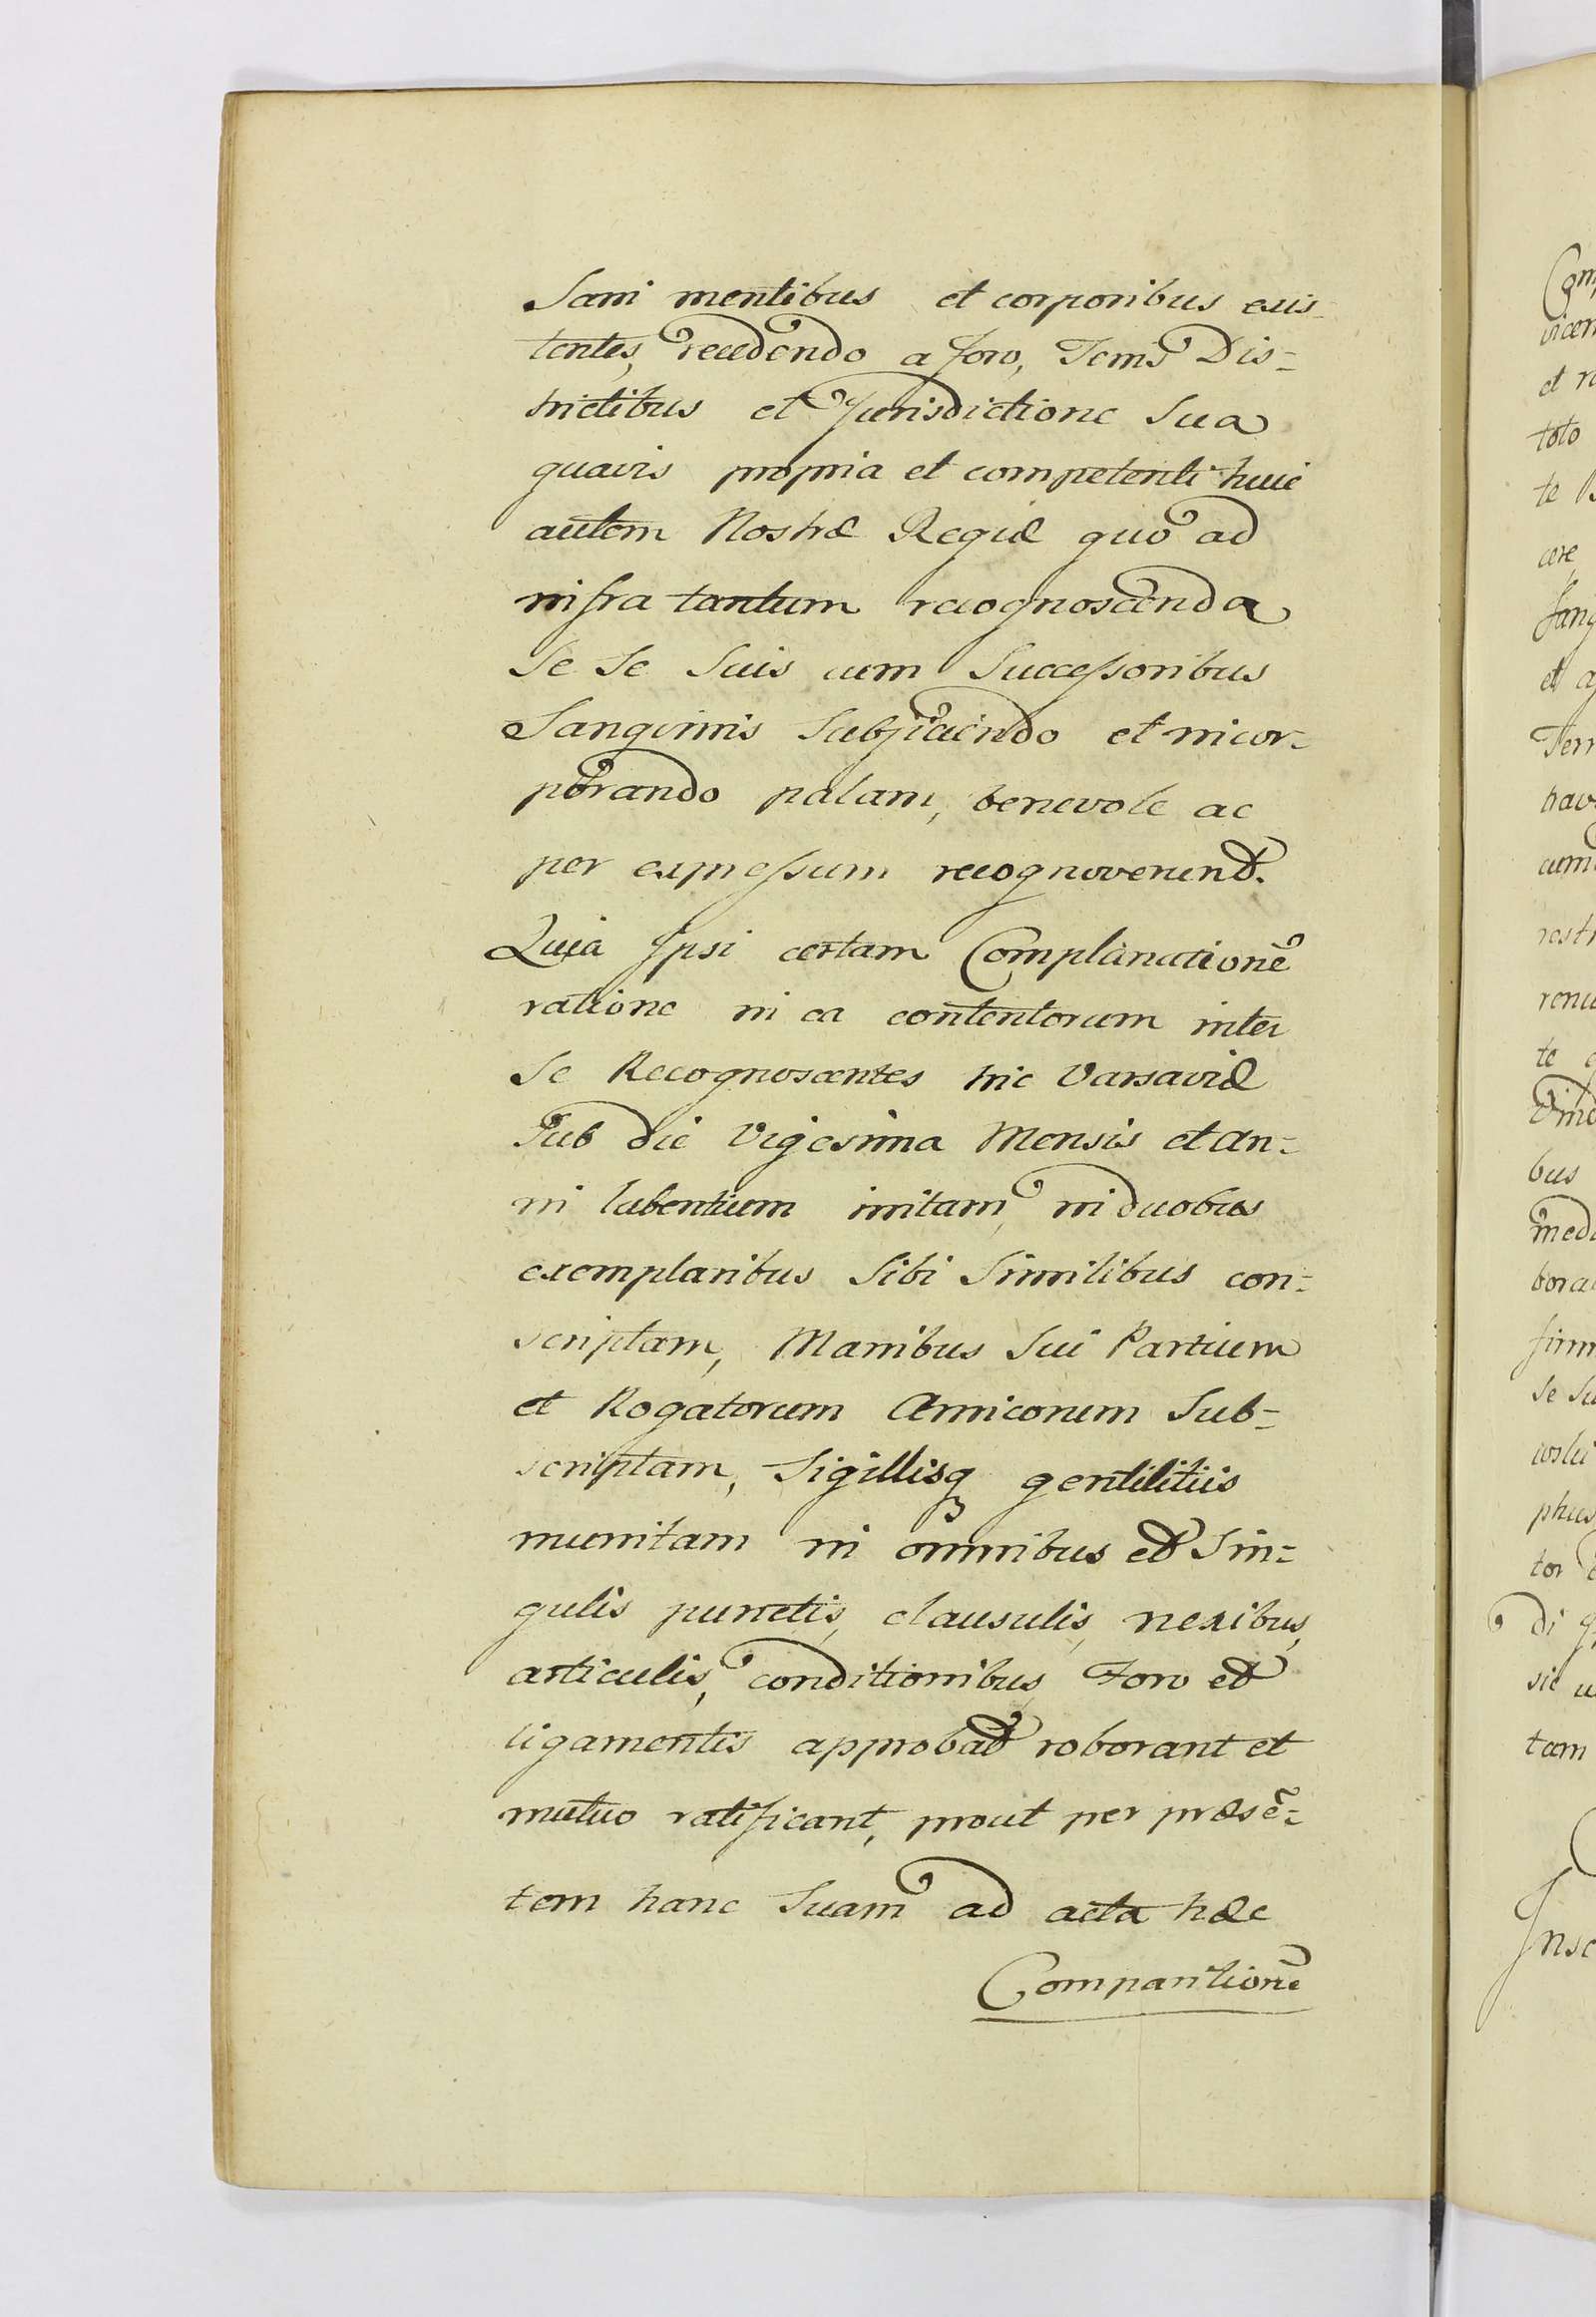 Sani mentibus et corporibus exis-
tentes, recedendo a foro, Terris Dis=
trictibus et Jurisdictione Sua
quavis propria et competenti huic
autem Nostræ Regiæ quo ad
infra tantum recognoscenda
Se Se Suis cum Successoribus
Sanguinis Subjiciendo et incor=
porando palam, benevole ac
per expressum recognoverunt.
Quia Ipsi certam Complanationē
ratione in ea contentorum inter
Se Recognoscentes hic Varsaviæ
Sub die Vigesima Mensis et An=
ni labentium initam, in duobus
exemplaribus Sibi Similibus con=
scriptam, Manibus Sui Partium
et Rogatorum Amicorum Sub=
scriptam, Sigillisq gentilitiis
munitam in omnibus et Sin=
gulis punctis, clausulis, nexibus,
articulis, conditionibus, Foro et
ligamentis approbat roborant et
mutuo ratificant, prout per præsē=
tem hanc Suam ad acta hæc
Comparitionē
Com
vicem
et r
toto
te
cere
Sang
et
Terr
trav
cum
restr
renu
te
Vind
bus
medi
bora
firm
Se Su
coslu
phus
tor
di
sic u
tam
Insc